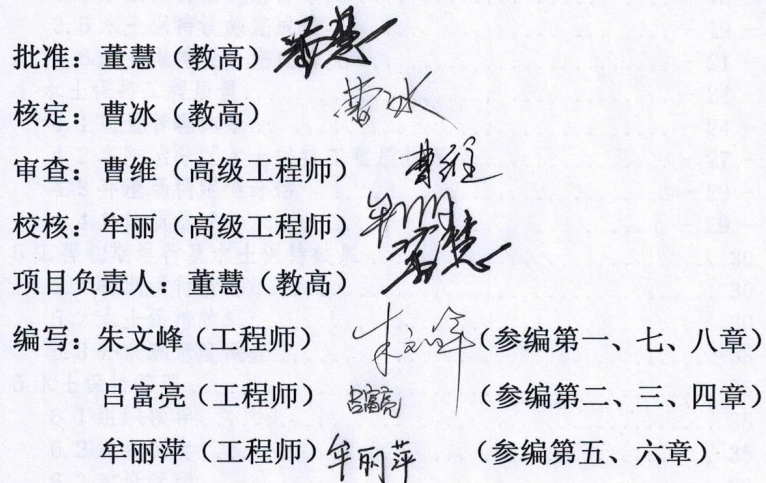 批准：董慧（教高） 董慧
核定：曹冰（教高） 曹冰
审查：曹维（高级工程师） 曹维
校核：牟丽（高级工程师） 牟丽
项目负责人：董慧（教高） 董慧
编写：朱文峰（工程师） 朱文峰 （参编第一、七、八章）
吕富亮（工程师） 吕富亮 （参编第二、三、四章）
牟丽萍（工程师） 牟丽萍 （参编第五、六章）